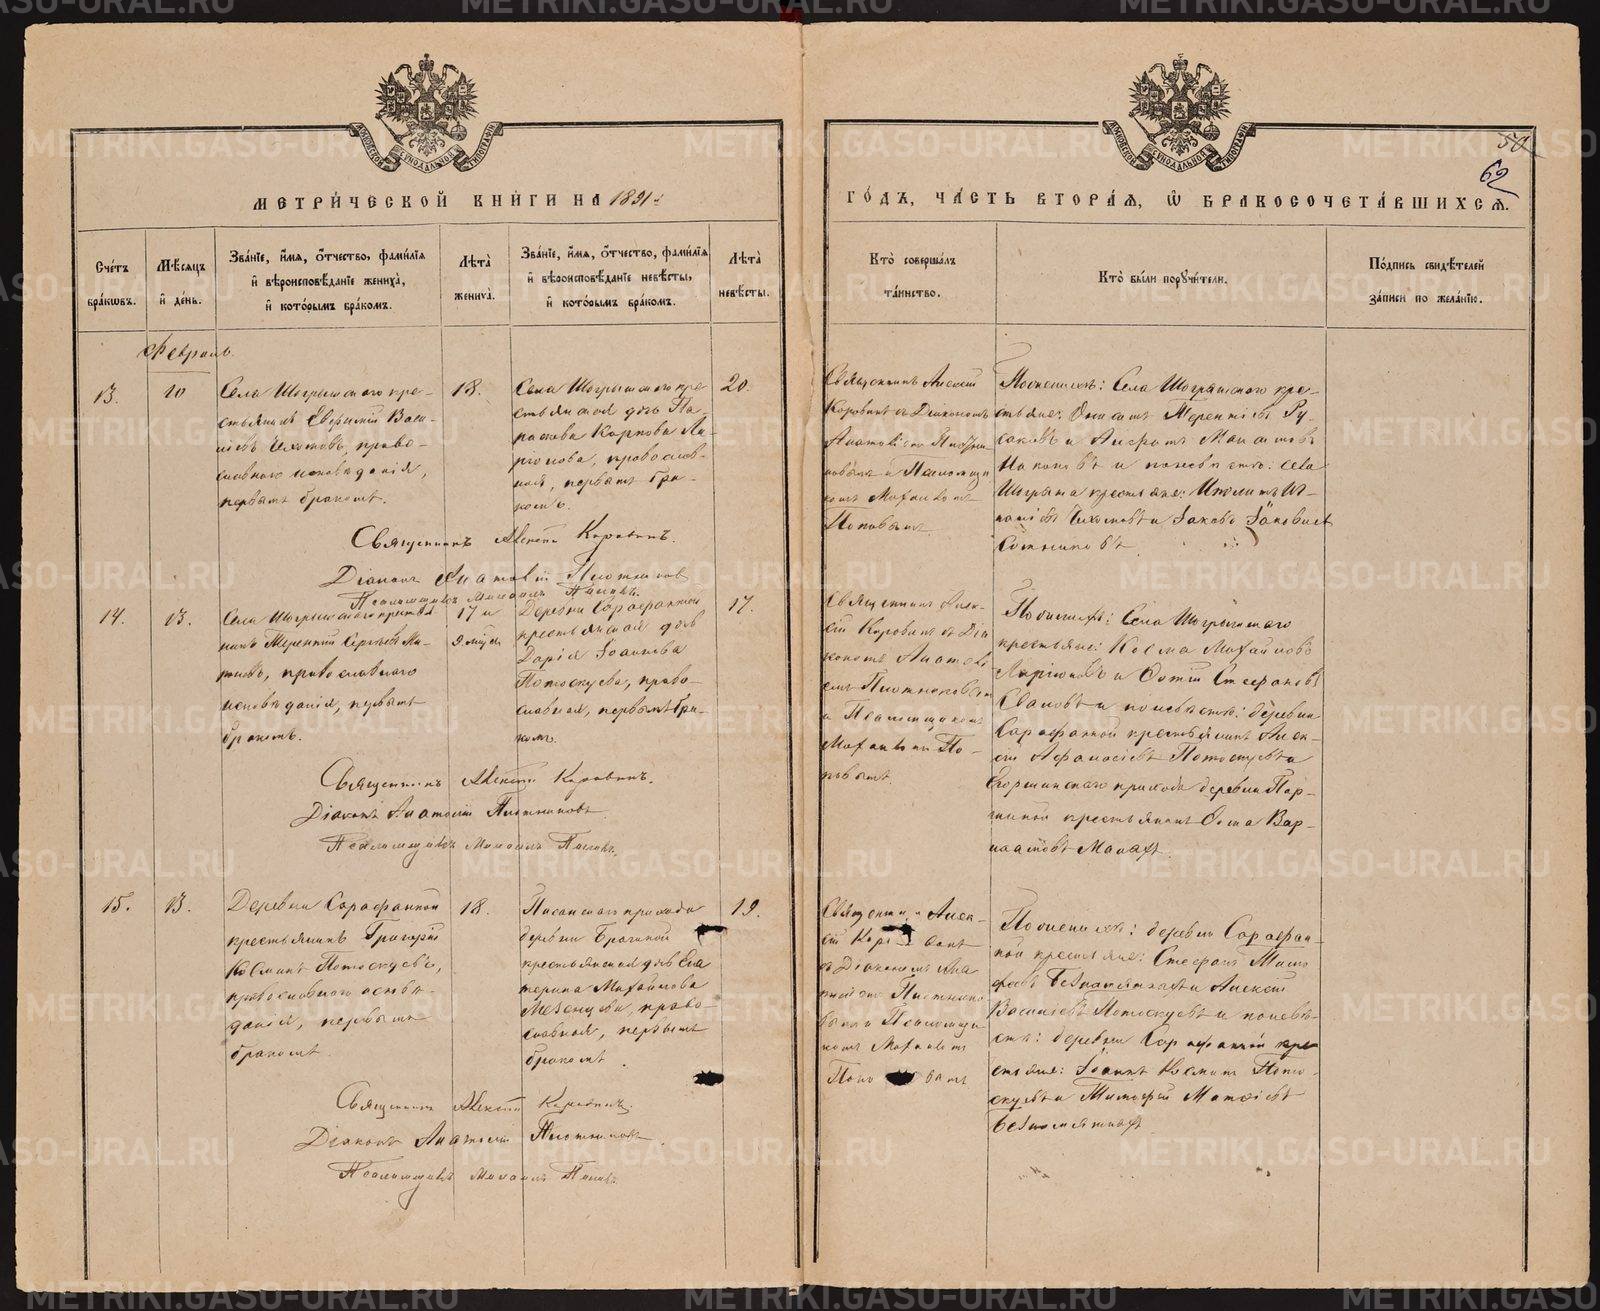 МЕТРИ́ЧЕСКОЙ КНИ́ГИ НА 1891 г
ГО́ДЪ, ЧА́СТЬ ВТОРА́Я, Ѡ БРАКОСОЧЕТА́ВШИХСЯ.
50
62
Сче́тъ бра́кѡвъ.
Мѣ́сяцъ и҆ де́нь.
Зва́нїе, и҆́мя, ѻ҆́тчество, фами́лїя и҆ вѣроисповѣ́данїе жениха̀, и҆ кото́рымъ бра́комъ.
Лѣ́та жениха̀.
Зва́нїе, и҆́мя, ѻ҆́тчество, фами́лїя и҆ вѣроисповѣ́данїе невѣ́сты, и҆ кото́рымъ бра́комъ.
Лѣ́та невѣ́сты.
Кто̀ соверша́лъ та́инство.
Кто̀ бы́ли поручи́тели.
По́дпись свидѣ́телей за́писи по жела́нїю.
Февраль.
13.
10
Села Шогрышскаго кре-
стьянинъ Евфимій Васи-
ліевъ право-
славнаго исповѣданія,
первымъ бракомъ.
18.
Села Шогрышскаго кре-
стьянская дочь Па-
раскева Карпова Ла-
ріонова, православ-
ная, первымъ бра-
комъ.
20.
Священникъ Алексій
Коровинъ съ Діакономъ
Анатоліемъ Плотни-
ковымъ и Псаломщи-
комъ Михаиломъ
Поповымъ
По женихѣ: Села Шогрышскаго кре-
стьяне: Терентіевъ Ру-
саковъ и
и по невѣстѣ: села
Шогрыша крестьяне: Ипполитъ
и Іаковъ Іаковлевъ
Сотниковъ
Священникъ Алексій Коровинъ.
Діаконъ Анатолій Плотниковъ
Псаломщикъ Михаилъ Поповъ.
14.
13.
Села Шогрышскаго крестья-
нинъ Терентій Сергѣевъ
православнаго
исповѣданія, первымъ
бракомъ.
17 и
Деревни Сарафанной
крестьянская дочь
Дарія Іоаннова
Потоскуева, право-
славная, первымъ бра-
комъ.
17.
Священникъ Алек-
сій Коровинъ съ Діа-
кономъ Анатолі-
емъ Плотниковымъ
и Псаломщикомъ
Михаиломъ По-
повымъ
По женихѣ: Села Шогрышскаго
крестьяне: Косма Михайловъ
Ларіоновъ и Фотій Стефановъ
и по невѣстѣ: деревни
Сарафанной крестьянинъ Алек-
сій Аѳанасіевъ Потоскуевъ и
Егоршинскаго прихода деревни Пар-
шиной крестьянинъ Фома Вар-
лаамовъ
Священникъ Алексій Коровинъ.
Діаконъ Анатолій Плотниковъ
Псаломщикъ Михаилъ Поповъ.
15.
13.
Деревни Сарафанной
крестьянинъ Григорій
Косминъ Потоскуевъ,
православнаго исповѣ-
данія, первымъ
бракомъ.
18.
прихода
деревни Брагиной
крестьянская дочь Ека-
терина Михайлова
Мезенцева, право-
славная, первымъ
бракомъ.
19.
Священникъ Алек-
сій Коровинъ
съ Діакономъ Ана-
толіемъ Плотнико-
вымъ и Псаломщи-
комъ Михаиломъ
Поповымъ
По женихѣ: деревни Сарафан-
ной крестьяне: Стефанъ
Безпамятныхъ и Алексій
Василіевъ Потоскуевъ и по невѣ-
стѣ: деревни Сарафанной кре-
стьяне: Іоаннъ Косминъ Пото-
скуевъ и Тимофей Матѳіевъ
Безпамятныхъ
Священникъ Алексій Коровинъ.
Діаконъ Анатолій Плотниковъ.
Псаломщикъ Михаилъ Поповъ.
METRIKI.GASO-URAL.RU